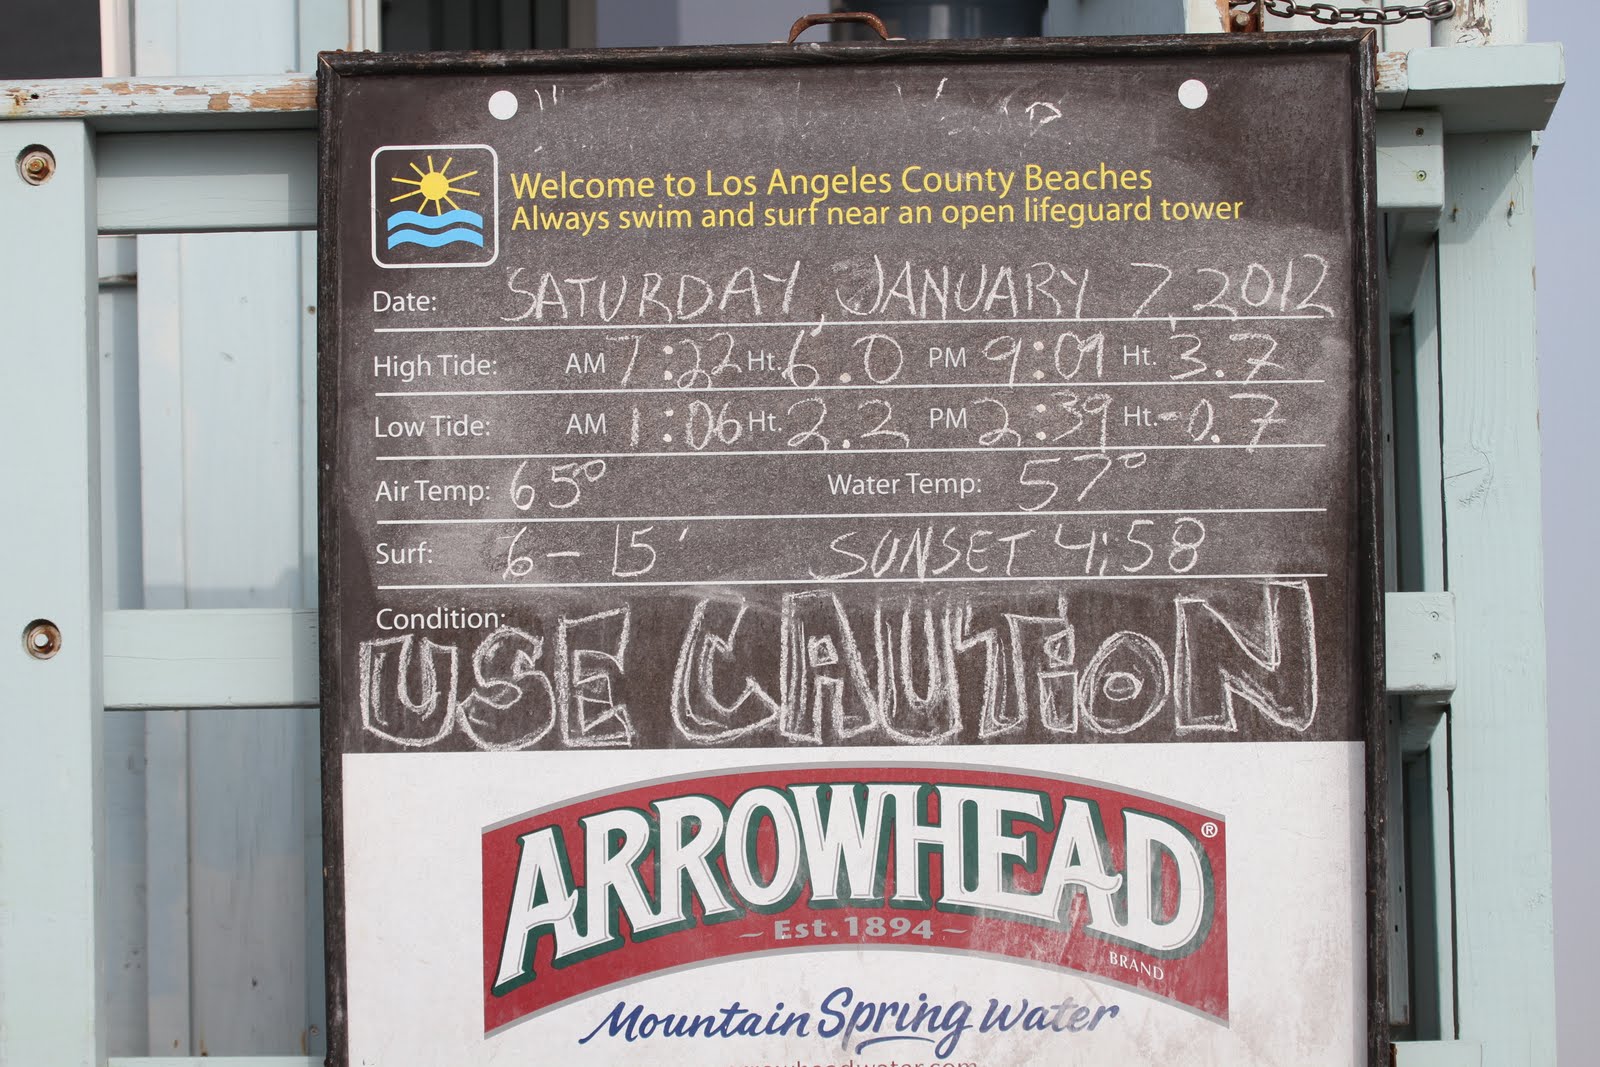 Welcome to Los Angeles County Beaches
Always swim and surf near an open lifeguard tower
Date: SATURDAY, JANUARY 7, 2012
High Tide: AM 7:22 Ht. 6.0 PM 9:09 Ht. 3.7
Low Tide: AM 1:06 Ht. 2.2 PM 2:39 Ht. -0.7
Air Temp: 65° Water Temp: 57°
Surf: 6-15' SUNSET 4:58
Condition:
USE CAUTiON
ARROWHEAD®
~ Est. 1894 ~
BRAND
Mountain Spring Water